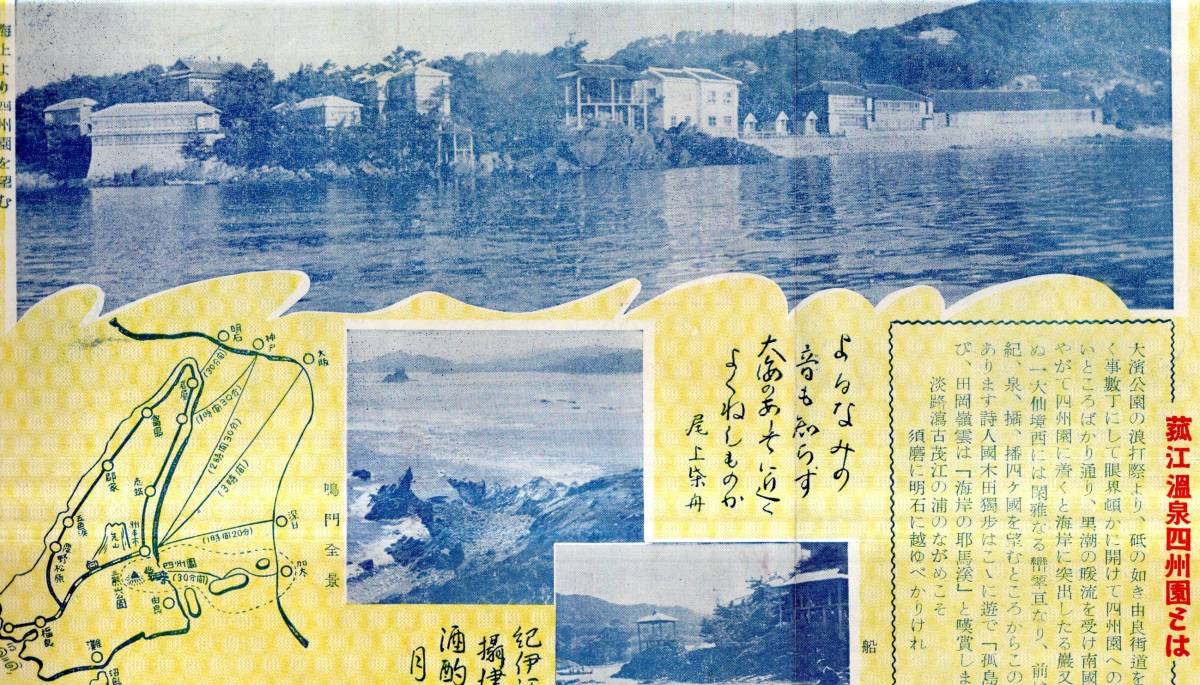 海上より四州園を望む
菰江溫泉四州園とは
大濱公園の浪打際より、砥の如き由良街道を
く事數丁にして眼界頓かに開けて四州園への
いところばかり通り、黒潮の暖流を受け南國
やがて四州園に着くと海岸に突出したる巖又
ぬ一大仙境西には閑雅なる巒翠亘なり、前
紀、泉、攝、播四ケ國を望むところからこの
あります詩人國木田獨歩はこゝに遊で「孤島
び、田岡嶺雲は「海岸の耶馬溪」と嘆賞しま
淡路瀉古茂江の浦のながめこそ
須磨に明石に越ゆべかりけれ
よるなみの
音も知らず
大海のあそ
よくねしものか
尾上柴舟
鳴門全景
船
紀伊
攝津
酒酌
月
明石
神戸
大阪
(30分間)
(1時間30分)
(2時間30分)
(3時間)
(1時間20分)
(30分間)
岩屋
富島
郡家
志筑
洲本
先山
慶野松原
四州園
由良
深日
加太
福良
灘
沼